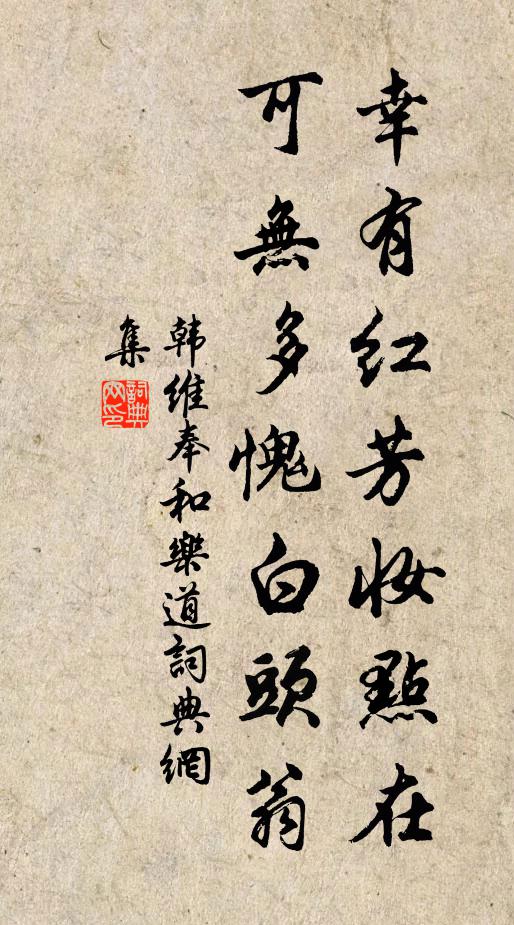 幸有红芳妆點在
可無多愧白頭翁
韩維奉和樂道詞典網
集
詞典网印